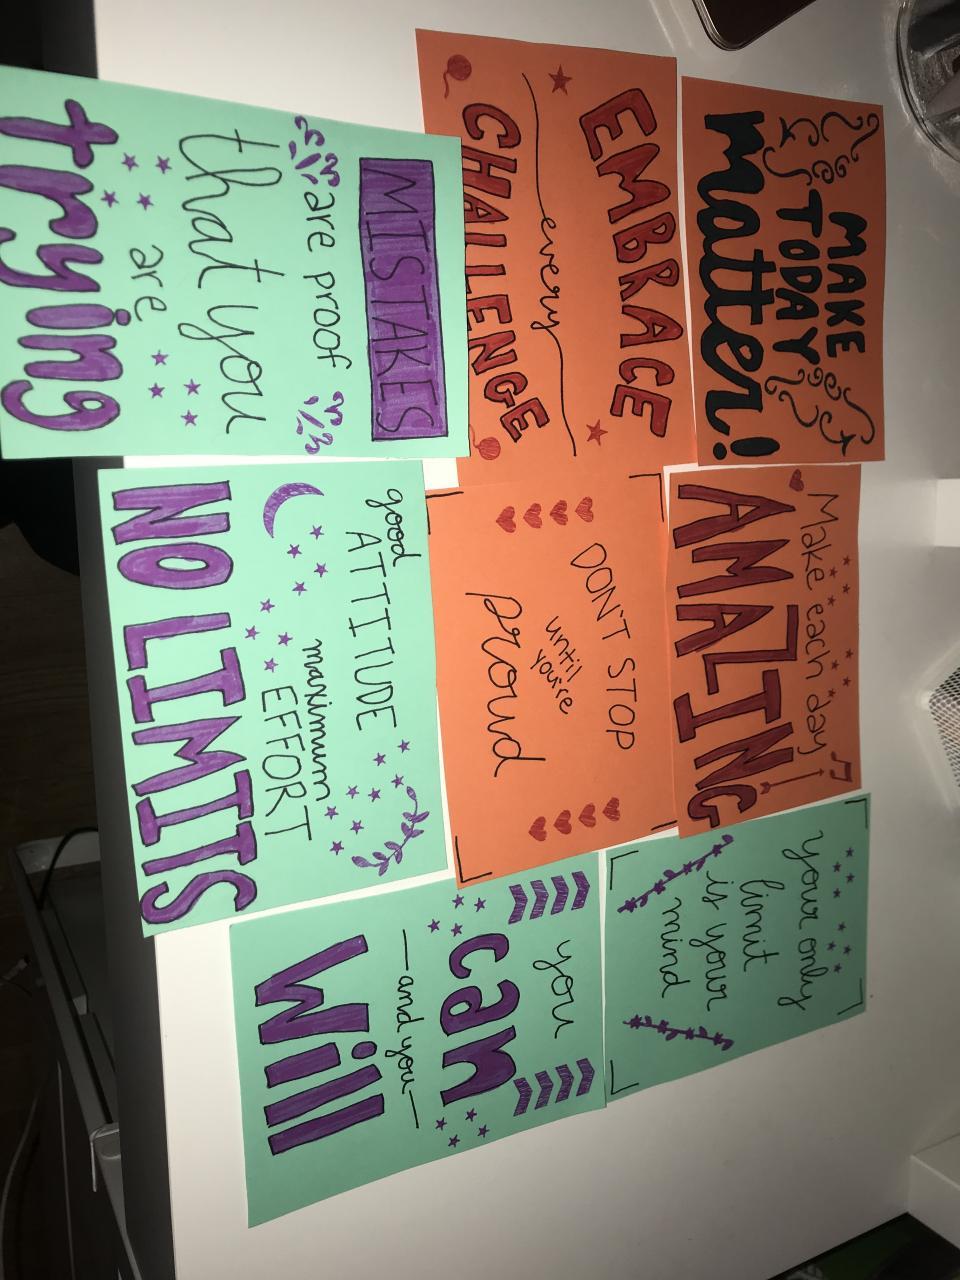 MAKE
TODAY
matter!
EMBRACE
every
CHALLENGE
MISTAKES
are proof
that you
are
trying
Make each day
AMAZING
DON'T STOP
until
you're
proud
good
ATTITUDE
maximum
EFFORT
NO LIMITS
your only
limit
is your
mind
you
can
and you
Will